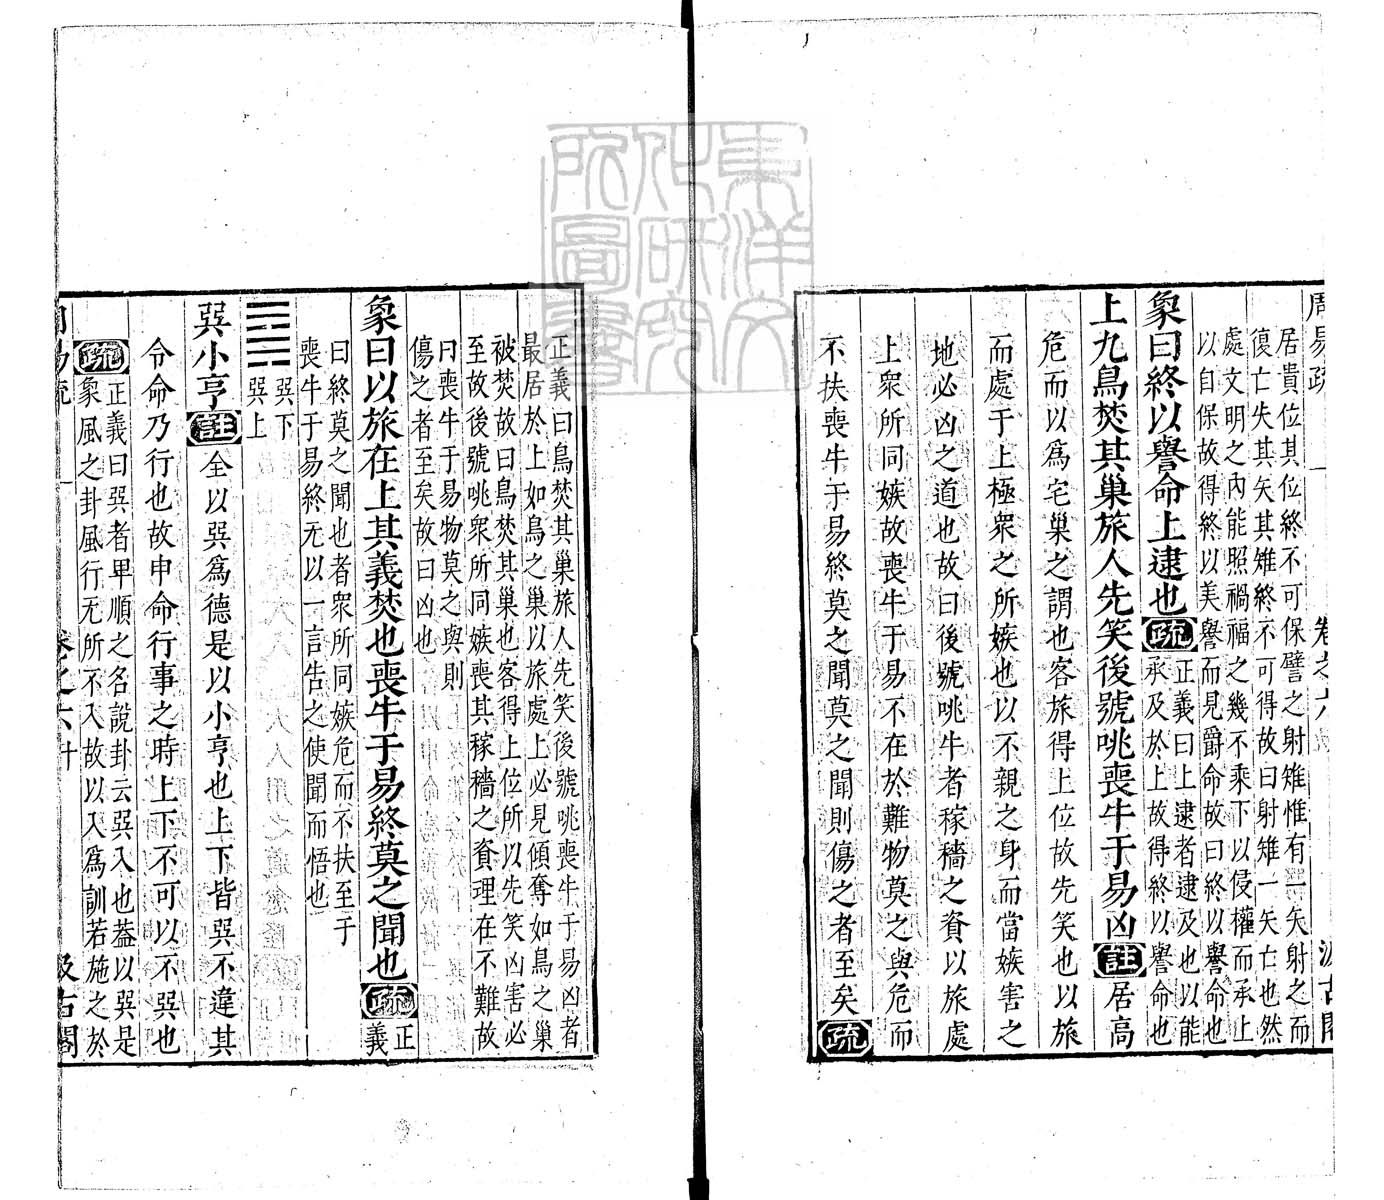 周易疏 卷之六 汲古閣
居貴位其位終不可保譬之射雉惟有一矢射之而
復亡失其矢其雉終不可得故曰射雉一矢亡也然
處文明之內能照禍福之幾不乘下以侵權而承上
以自保故得終以美譽而見爵命故曰終以譽命也
象曰終以譽命上逮也疏正義曰上逮者逮及也以能
承及於上故得終以譽命也
上九鳥焚其巢旅人先笑後號咷喪牛于易凶註居高
危而以爲宅巢之謂也客旅得上位故先笑也以旅
而處于上極衆之所嫉也以不親之身而當嫉害之
地必凶之道也故曰後號咷牛者稼穡之資以旅處
上衆所同嫉故喪牛于易不在於難物莫之與危而
不扶喪牛于易終莫之聞莫之聞則傷之者至矣疏
正義曰鳥焚其巢旅人先笑後號咷喪牛于易凶者
最居於上如鳥之巢以旅處上必見傾奪如鳥之巢
被焚故曰鳥焚其巢也客得上位所以先笑凶害必
至故後號咷衆所同嫉喪其稼穡之資理在不難故
曰喪牛于易物莫之與則
傷之者至矣故曰凶也
象曰以旅在上其義焚也喪牛于易終莫之聞也疏正
義
曰終莫之聞也者衆所同嫉危而不扶至于
喪牛于易終无以一言告之使聞而悟也
巽下
巽上
巽小亨註全以巽爲德是以小亨也上下皆巽不違其
令命乃行也故申命行事之時上下不可以不巽也
疏正義曰巽者卑順之名說卦云巽入也葢以巽是
象風之卦風行无所不入故以入爲訓若施之於
周易疏 卷之六 汲古閣